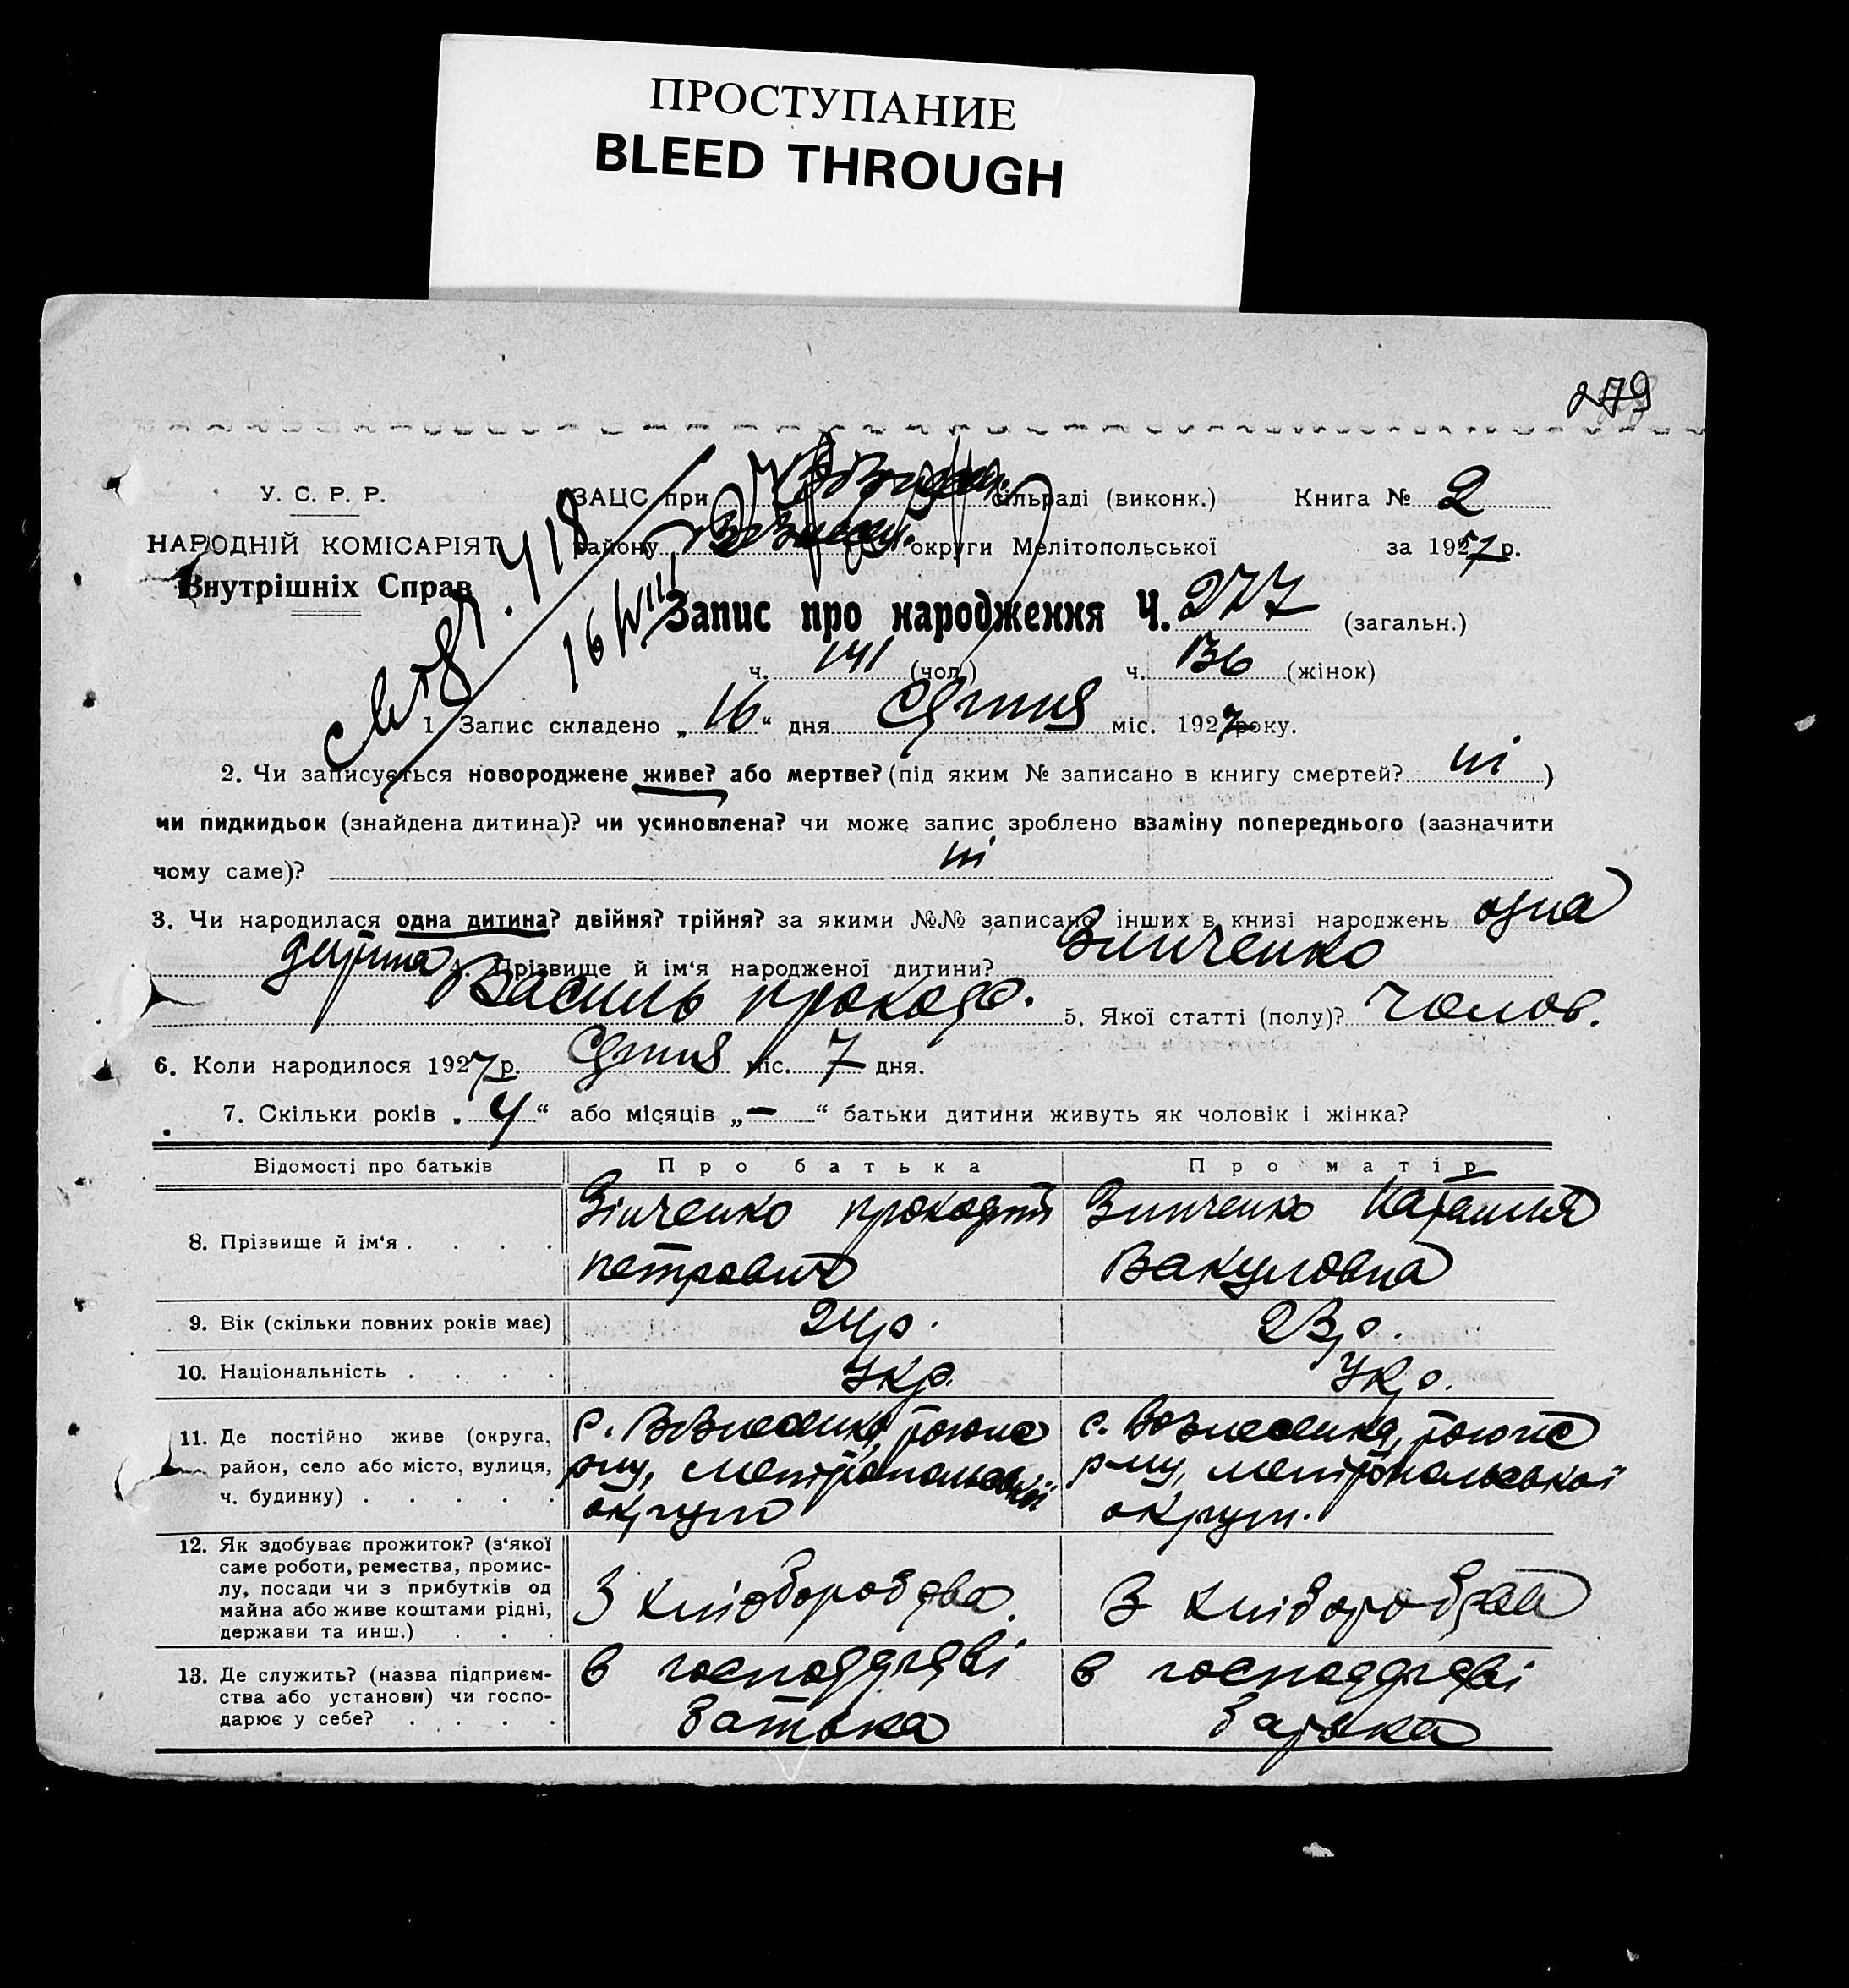 ПРОСТУПАНИЕ
BLEED THROUGH
279
У. С. Р. Р.
НАРОДНІЙ КОМІСАРІЯТ
Внутрішніх Справ
ЗАЦС при сільраді (виконк.) Книга № 2
району Вознесен. округи Мелітопольської за 1927 р.
418
16/VIII
Запис про народження Ч. 277 (загальн.)
ч. 141 (чол.) ч. 136 (жінок)
1. Запис складено „16“ дня Серпня міс. 1927 року.
2. Чи записується новороджене живе? або мертве? (під яким № записано в книгу смертей? ні)
чи пидкидьок (знайдена дитина)? чи усиновлена? чи може запис зроблено взаміну попереднього (зазначити
чому саме)? ні
3. Чи народилася одна дитина? двійня? трійня? за якими №№ записано інших в книзі народжень одна
дитина 4. Прізвище й ім'я народженої дитини? Зинченко
Василь Прокоф. 5. Якої статті (полу)? Чолов.
6. Коли народилося 1927 р. Серпня міс. 7 дня.
7. Скільки років „4“ або місяців „—“ батьки дитини живуть як чоловік і жінка?
Відомості про батьків Про батька Про матір
8. Прізвище й ім'я . . . . Зінченко Прокофий Зинченко Наталія
Петрович Вакуловна
9. Вік (скільки повних років має) 24 р. 23 р.
10. Національність . . . . Укр. Укр.
11. Де постійно живе (округа, район, село або місто, вулиця, ч. будинку) . . . . .
с. Вознесенка, р-ну, Мелітопольської округи
с. Вознесенка, р-ну, Мелітопольської округи.
12. Як здобуває прожиток? (з'якої саме роботи, ремества, промислу, посади чи з прибутків од майна або живе коштами рідні, держави та инш.) . . .
З хліборобства. З хліборобства
13. Де служить? (назва підприємства або установи) чи господарює у себе? . . . .
в господарстві батька
в господарстві батька